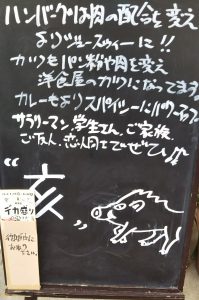 ハンバーグは肉の配合を変え
よりジュースウィーに!!
カツもパン粉や肉を変え
洋食屋のカツになってます。
カレーもよりスパイシーにパワーアップ
サラリーマン、学生さん、ご家族、
ご友人、恋人同士でぜひ♪
"亥
デカ盛り